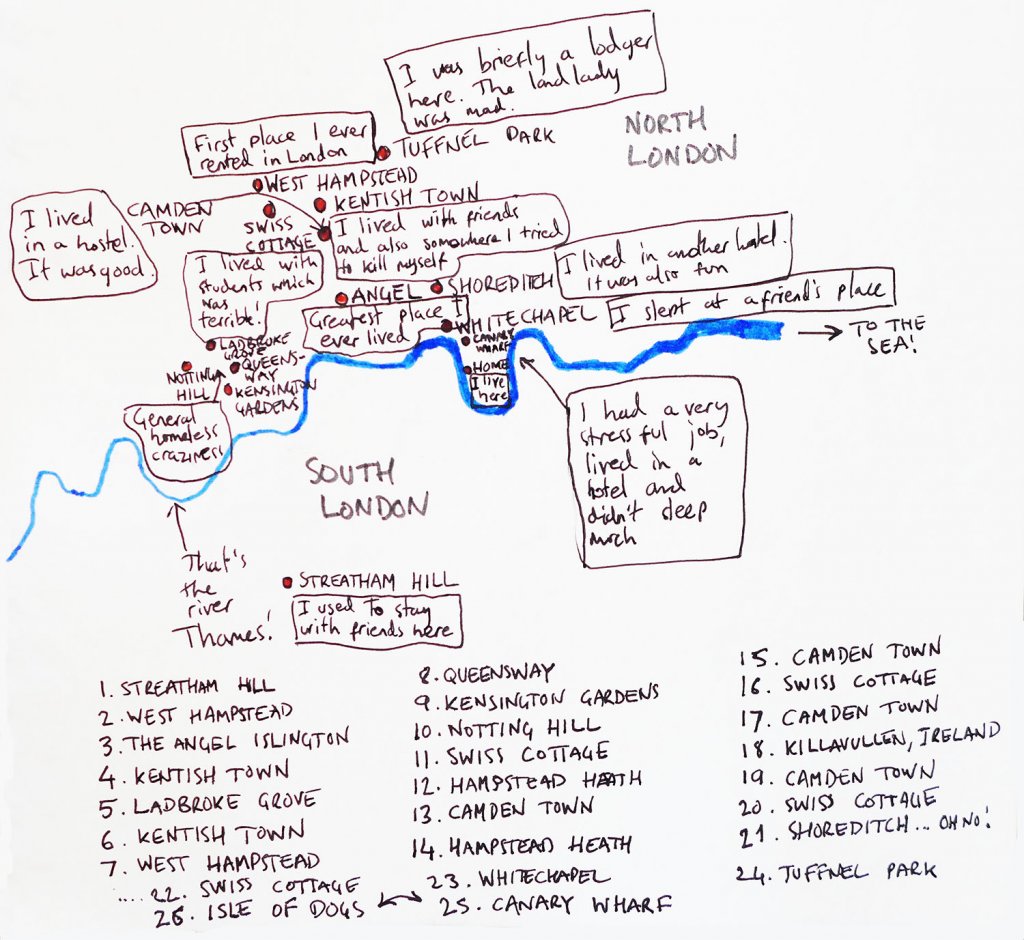 I was briefly a lodger
here. The landlady
was mad.
NORTH
LONDON
First place I ever
rented in London
TUFFNEL PARK
WEST HAMPSTEAD
KENTISH TOWN
I lived
in a hostel.
It was good.
CAMDEN
TOWN
SWISS
COTTAGE
I lived with friends
and also somewhere I tried
to kill myself
I lived in another hotel.
it was also fun
I lived with
students which
was
terrible!
SHOREDITCH
ANGEL
I slept at a friend's place
Greatest place I
ever lived
WHITECHAPEL
TO THE
SEA!
CANARY
WHARF
LADBROKE
GROVE
HOME
I live
here
NOTTING
HILL
QUEENS-
WAY
KENSINGTON
GARDENS
General
homeless
craziness
I had a very
stressful job,
lived in a
hotel and
didn't sleep
much
SOUTH
LONDON
That's
the
river
Thames!
STREATHAM HILL
I used to stay
with friends here
1. STREATHAM HILL
2. WEST HAMPSTEAD
3. THE ANGEL ISLINGTON
4. KENTISH TOWN
5. LADBROKE GROVE
6. KENTISH TOWN
7. WEST HAMPSTEAD
8. QUEENSWAY
9. KENSINGTON GARDENS
10. NOTTING HILL
11. SWISS COTTAGE
12. HAMPSTEAD HEATH
13. CAMDEN TOWN
14. HAMPSTEAD HEATH
15. CAMDEN TOWN
16. SWISS COTTAGE
17. CAMDEN TOWN
18. KILLAVULLEN, IRELAND
19. CAMDEN TOWN
20. SWISS COTTAGE
21. SHOREDITCH... OH NO!
.... 22. SWISS COTTAGE
23. WHITECHAPEL
24. TUFFNEL PARK
26. ISLE OF DOGS
25. CANARY WHARF